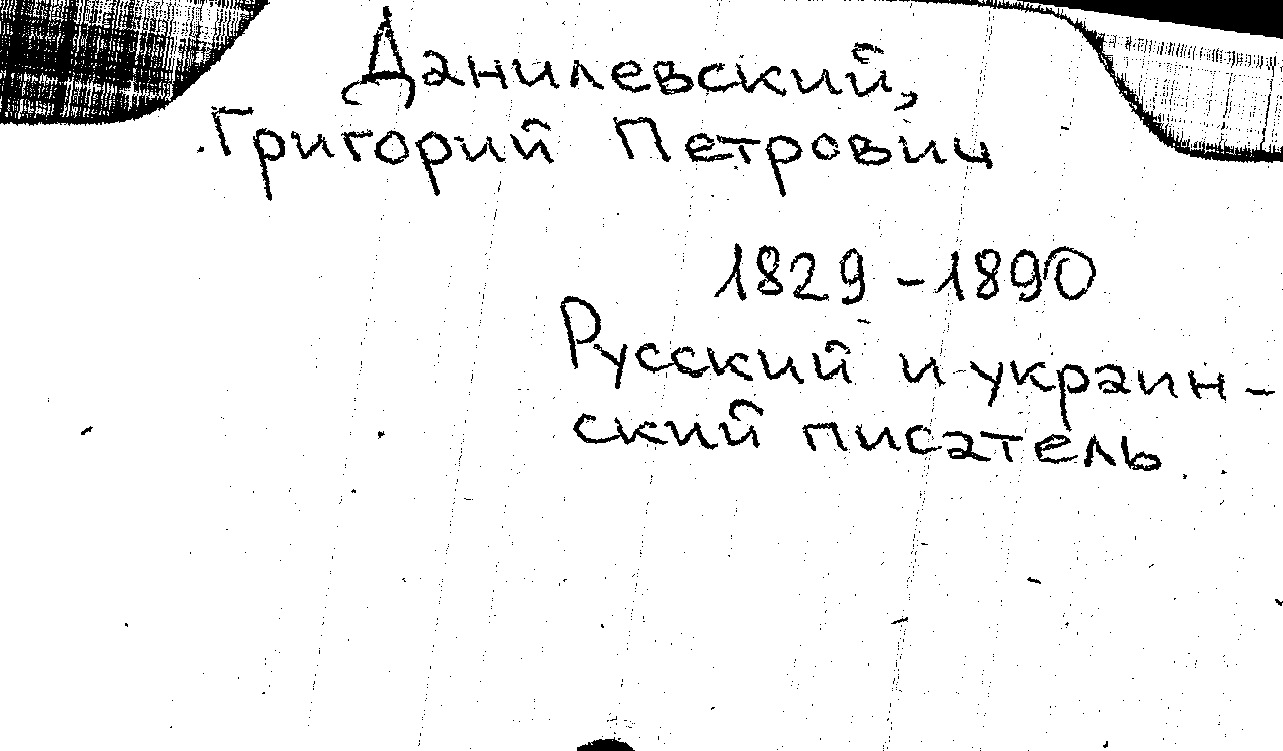 Данилевский,
Григорий Петрович
1829-1890
Русский и украин-
ский писатель